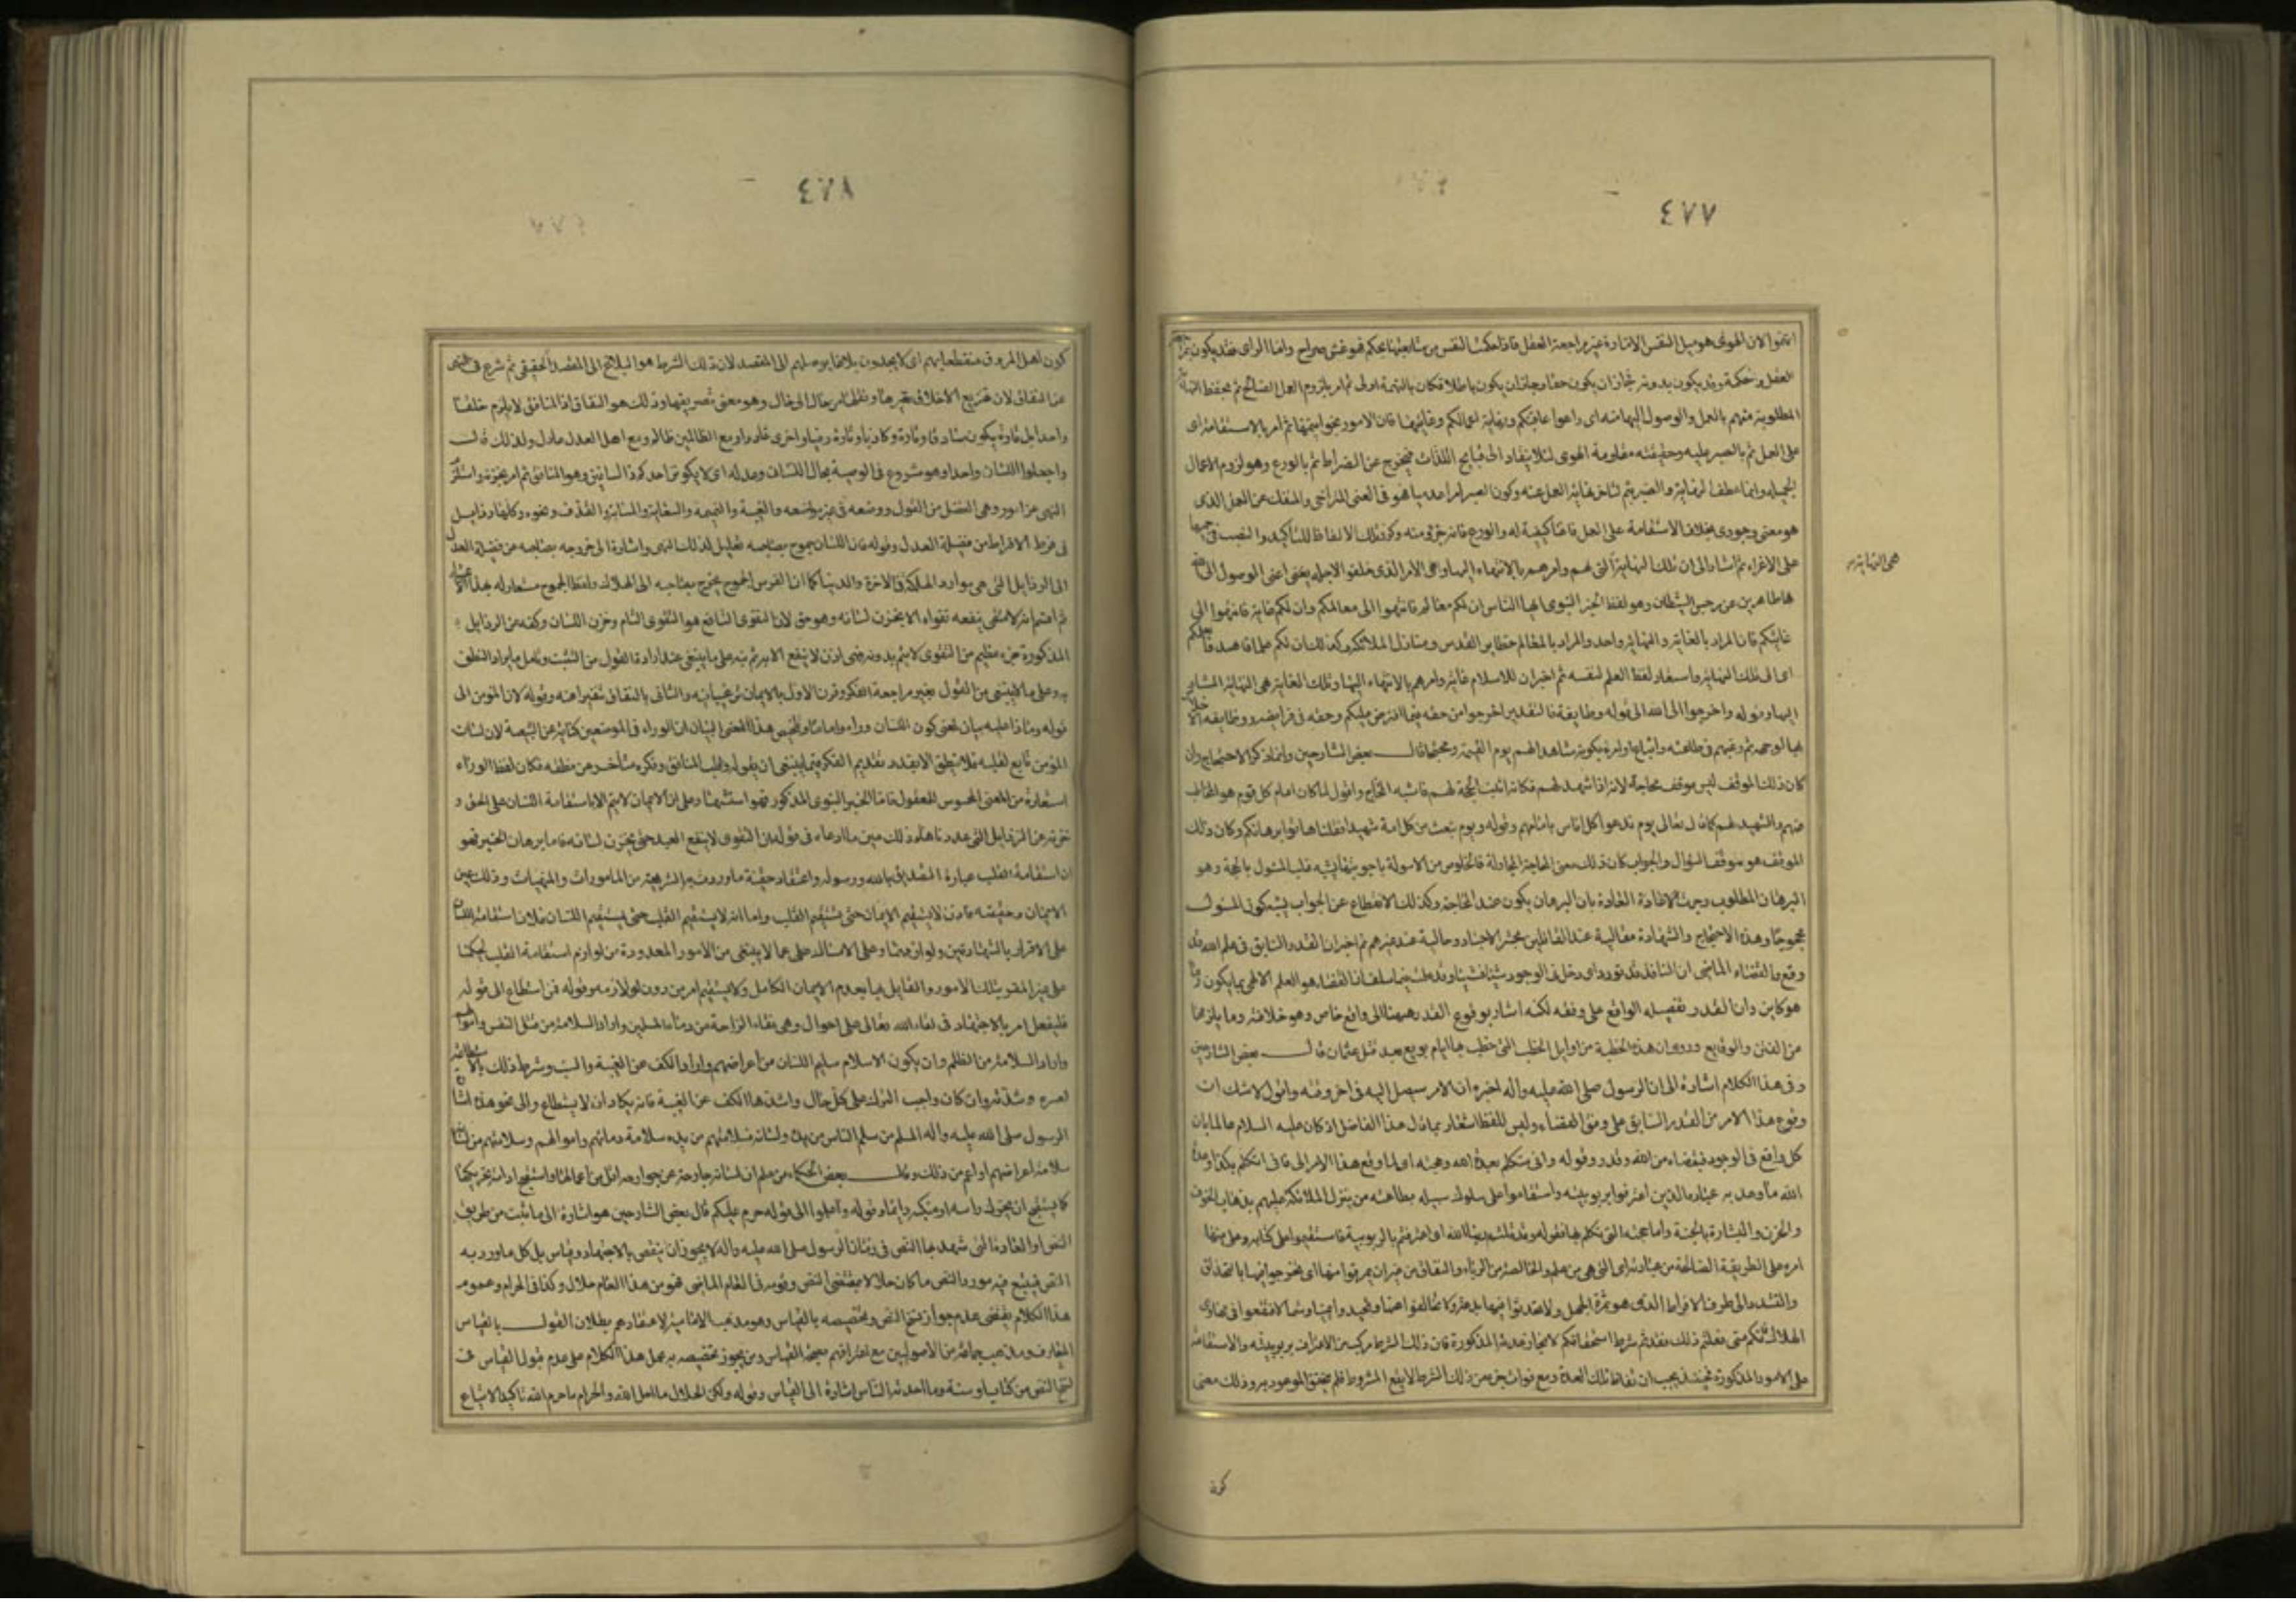 ٤٧٧
اتهموا لان الهوى هو ميل النفس الامارة من غير مراجعة العقل فاذا حكمت النفس عن متابعتها بحكم فهو غش صراح واما الراى فقد يكون بمراجعة
العقل وحكمه وقد يكون بدونه فجاز ان يكون حقا وجاز ان يكون باطلا فكان بالتهمة اولى ثم امر بلزوم العمل الصالح ثم بحفظ النهاية
المطلوبة منهم بالعمل والوصول اليها منه اى راعوا عاقبتكم ونهاية اعمالكم وغايتها فان الامور بخواتيمها ثم امر بالاستقامة اى
على العمل ثم بالصبر عليه وحقيقته مقاومة الهوى لئلا ينقاد الى قبايح اللذات فيخرج عن الصراط ثم بالورع وهو لزوم الاعمال
الجميلة وانما عطف النهاية والصبر بثم لتاخر نهاية العمل عنه وكون الصبر امرا عدميا هو فى المعنى المتراخى والمنفك عن العمل الذى
هو معنى وجودى بخلاف الاستقامة على العمل فانها كيفية له والورع فانه جزء منه وكرر تلك الالفاظ للتاكيد والنصب فى جميعها
على الاغراء ثم اشار الى ان تلك النهاية التى لهم وامرهم بالانتهاء اليها وهى الامر الذى خلقوا لاجله يعنى اعنى الوصول الى الله
طاهرين عن رجس الشيطان وهو لفظ الخبر النبوى ايها الناس ان لكم معالم فانتهوا الى معالمكم وان لكم غاية فانتهوا الى
غايتكم فان المراد بالغاية والنهاية واحد والمراد بالمعالم حظاير القدس ومنازل الملائكة وكذلك ان لكم علما فاهتدوا بعلمكم
اى الى تلك النهاية واستعار لفظ العلم لنفسه ثم اخبر ان للاسلام غاية وامرهم بالانتهاء اليها وتلك الغاية هى النهاية المشار
اليها وقوله واخرجوا الى الله الى قوله وظايفه فالتقدير اخرجوا من حقه فيما افترض عليكم وحقه فى فرايضه ووظايفه الاخلاص
بها لوجهه ثم رغبهم فى طاعته واتباع اوامره بكونه شاهدا لهم يوم القيمة ومحتجا قال بعض الشارحين وانما ذكر الاحتجاج وان
كان ذلك الموقف ليس موقف محاجة لانه اذا شهد لهم فكانه اثبت الحجة لهم فاشبه المحاج واقول لما كان امام كل قوم هو المخاطب
عنهم والشهيد لهم كما قال تعالى يوم ندعوا كل اناس بامامهم وقوله ويوم نبعث من كل امة شهيدا فقلنا هاتوا برهانكم وكان ذلك
الموقف هو موقف السؤال والجواب كان ذلك معنى المحاجة والمجادلة فالخلوص من الاسولة باجوبتها يشبه غلب المسئول بالحجة وهو
البرهان المطلوب وجرت العادة بان البرهان يكون عند المحاجة وكذلك الانقطاع عن الجواب يشبه كون المسئول
محجوجا وهذا الاحتجاج والشهادة مقالية عند القائلين بحشر الاجساد وحالية عند غيرهم ثم اخبر ان القدر السابق فى علم الله قد
وقع والقضاء الماضى ان النافذ قد تورد اى دخل فى الوجود شيئا فشيئا وقد علمت فيما سلف ان القضاء هو العلم الالهى بما يكون وما
هو كاين وان القدر تفصيله الواقع على وفقه لكنه اشار بوقوع القدر هيهنا الى واقع خاص وهو خلافته وما يلزمها
من الفتن والوقايع وروى ان هذه الخطبة من اوايل الخطب التى خطب بها ايام بويع بعد قتل عثمان قال بعض الشارحين
وفى هذا الكلام اشارة الى ان الرسول صلى الله عليه وآله اخبره ان الامر سيصل اليه فى اخر وقته واقول لاشك ان
وقوع هذا الامر من القدر السابق على وفق القضاء وليس للفظ اشعار بما قال هذا الفاضل اذ كان عليه السلام عالما بان
كل واقع فى الوجود فبقضاء من الله وقدر وقوله وانى متكلم بعدة الله وحجته اى لما وقع هذا الامر الى فانى اتكلم بكذا وعدة
الله ما وعد به عباده الذين اعترفوا بربوبيته واستقاموا على سلوك سبيله بطاعته من تنزل الملائكة عليهم بذهاب الخوف
والحزن والبشارة بالجنة واما حجته التى تكلم بها فقوله وقد قلتم ربنا الله اى اعترفتم بالربوبية فاستقيموا على كتابه وعلى منهاج
امره على الطريقة الصالحة من عبادته اى التى هى من علم والخالصة من الرياء والنفاق من غير ان يمرقوا منها اى يخرجوا فيها بالتحذلق
والتشدد الى طرف الافراط الذى هو ثمرة الجهل ولا تبتدعوا فيها بدعة ولا تخالفوا عنها وتحيدوا يمينا وشمالا فتقعوا فى مهاوى
الهلاك فانكم متى فعلتم ذلك فقد تم شرط استحقاقكم لانجاز عدته المذكورة فان ذلك الشرط مركب من الاعتراف بربوبيته والاستقامة
على الامور المذكورة فحينئذ يجب ان تفاض تلك العدة ومع فوات جزء من ذلك الشرط لا يقع المشروط فلم يتحقق الموعود به وذلك معنى
هى النهاية
كون
٤٧٨
كون اهل المروق منقطعا بهم اى لا يجدون بلاغا يوصلهم الى المقصد لان ذلك الشرط هو البلاغ الى المقصد الحقيقى ثم شرع فى النهى
عن النفاق لان تهزيع الاخلاق تغيرها ونقلها من حال الى حال وهو معنى تصريفها وذلك هو النفاق اذ المنافق لا يلزم خلقا
واحدا بل تارة يكون صادقا وتارة كاذبا وتارة وفيا واخرى غادرا ومع الظالمين ظالم ومع اهل العدل عادل ولذلك قال
واجعلوا اللسان واحدا وهو شروع فى الوصية بحال اللسان وعدله اى لا يكونن احدكم ذا لسانين وهو المنافق ثم امر بخزنه واستلزم
النهى عن امور وهى الفضل من القول ووضعه فى غير مواضعه والغيبة والنميمة والسعاية والمسابة والقذف ونحوه وكلها رذايل
فى طرف الافراط من فضيلة العدل وقوله فان اللسان جموح بصاحبه تعليل لذلك النهى واشارة الى خروجه بصاحبه عن فضيلة العدل
الى الرذايل التى هى موارد الهلكة فى الاخرة والدنيا كما ان الفرس الجموح يخرج بصاحبه الى الهلاك ولفظ الجموح مستعار له بهذا الاعتبار
ثم اقسم انه لا متقى ينفعه تقواه الا بخزن لسانه وهو حق لان التقوى النافع هو التقوى التام وخزن اللسان وكفه عن الرذايل
المذكورة جزء عظيم من التقوى لا يتم بدونه فهى اذن لا ينفع الا به ثم نبه على ما ينبغى عند ارادة القول من التثبت وتامل ما يراد النطق
به وعلى ما لا ينبغى من القول بغير مراجعة الفكر وقرن الاول بالايمان ترغيبا فيه والثانى بالنفاق تنفيرا عنه وقوله لان المؤمن الى
قوله وماذا عليه بيان لمعنى كون اللسان وراء واماما وتلخيص هذا المعنى البيان ان الوراء فى الموضعين كناية عن التبعية لان لسان
المؤمن تابع لقلبه فلا ينطق الا بعد تقديم الفكر فيما ينبغى ان يقوله وقلب المنافق وفكره متأخر عن نطقه فكان لفظ الوراء
استعارة من المعنى المحسوس للمعقول فاما الخبر النبوى المذكور فهو استشهاد على ان الايمان لا يتم الا باستقامة اللسان على الحق و
خزنه عن الرذايل التى عددناها وذلك عين ما ادعاه فى قوله ان التقوى لا ينفع العبد حتى يخزن لسانه فاما برهان الخبر فهو
ان استقامة القلب عبارة التصديق بالله ورسوله واعتقاد حقية ما وردت به الشريعة من المامورات والمنهيات وذلك عين
الايمان وحقيقته فاذن لا يستقيم الايمان حتى يستقيم القلب واما انه لا يستقيم القلب حتى يستقيم اللسان فلان استقامة اللسان
على الاقرار بالشهادتين ولوازمهما وعلى الامساك عما لا ينبغى من الامور المعدودة من لوازم استقامة القلب لحكمنا
على غير المقر بتلك الامور والقايل بها بعدم الايمان الكامل ولا يستقيم امر من دون لوازمه وقوله فمن استطاع الى قوله
فليفعل امر بالاجتهاد فى لقاء الله تعالى على احوال وهى نقاء الراحة من دماء المسلمين واراد السلامة من قتل النفس واموالهم
واراد السلامة من الظلم وان يكون الاسلام سليم اللسان من اعراضهم واراد الكف عن الغيبة والسب وشرط ذلك بالاستطاعة
لعسره وشدته وان كان واجب الترك على كل حال واشدها الكف عن الغيبة فانه يكاد ان لا يستطاع والى نحو هذه اشار
الرسول صلى الله عليه وآله المسلم من سلم الناس من يده ولسانه فسلامتهم من يده سلامة دمائهم واموالهم وسلامتهم من لسانه
سلامة اعراضهم او اعم من ذلك وقال بعض الحكماء من علم ان لسانه جارحة من جوارحه اقل من اعمالها واستقبح ادامة تحريكها
كما يستقبح ان يحرك راسه او منكبه دائما وقوله واعلموا الى قوله حرم عليكم قال بعض الشارحين هو اشارة الى ما ثبت من طريق
النص او العادة التى شهد بها النص فى زمان الرسول صلى الله عليه وآله لا يجوز ان ينقض بالاجتهاد وقياس بل كل ما ورد به
النص فيتبع فيه مورد النص ما كان حلالا بمقتضى النص وعمومه فى العام الماضى فهو من هذا العام حلال وكذا فى الحرام وعموم
هذا الكلام يقتضى عدم جواز نسخ النص وتخصيصه بالقياس وهو مذهب الامامية لاعتقادهم بطلان القول بالقياس
المتعارف ومذهب جماعة من الاصوليين مع اعترافهم بصحة القياس ومن يجوز تخصيصه به حمل هذا الكلام على عدم قبول القياس فى
نسخ النص من كتاب او سنة وما احدثه الناس اشارة الى القياس وقوله ولكن الحلال ما احل الله والحرام ما حرم الله تاكيد لاتباع